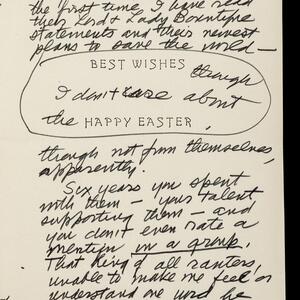 the first time, I have read
their Lord & Lady Bountyne
statements and their newest
plans to save the world —
BEST WISHES though
I don't care about
the HAPPY EASTER,
though not from themselves,
apparently.
Six years you spent
with them — your talent
supporting them — and
you don't even rate a
mention in a group.
That King of all ranters,
unable to make me feel or
understand one word he